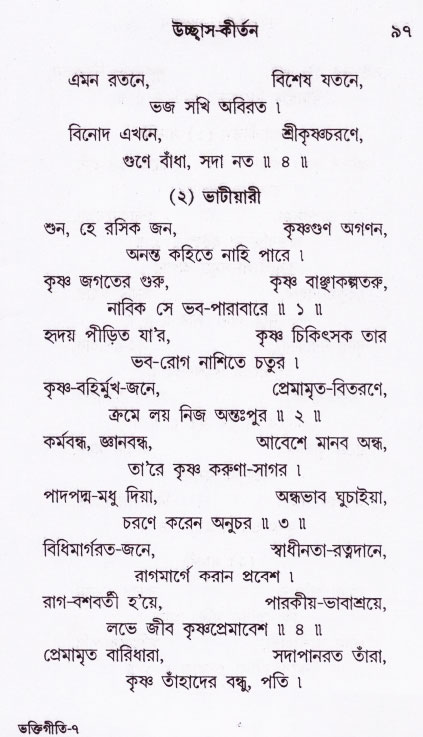 উচ্ছ্বাস-কীর্তন ৯৭
এমন রতনে, বিশেষ যতনে,
ভজ সখি অবিরত ।
বিনোদ এখনে, শ্রীকৃষ্ণচরণে,
গুণে বাঁধা, সদা নত ॥ ৪ ॥
(২) ভাটীয়ারী
শুন, হে রসিক জন, কৃষ্ণগুণ অগণন,
অনন্ত কহিতে নাহি পারে ।
কৃষ্ণ জগতের গুরু, কৃষ্ণ বাঞ্ছাকল্পতরু,
নাবিক সে ভব-পারাবারে ॥ ১ ॥
হৃদয় পীড়িত যা'র, কৃষ্ণ চিকিৎসক তার
ভব-রোগ নাশিতে চতুর ।
কৃষ্ণ-বহির্মুখ-জনে, প্রেমামৃত-বিতরণে,
ক্রমে লয় নিজ অন্তঃপুর ॥ ২ ॥
কর্মবন্ধ, জ্ঞানবন্ধ, আবেশে মানব অন্ধ,
তা'রে কৃষ্ণ করুণা-সাগর ।
পাদপদ্ম-মধু দিয়া, অন্ধভাব ঘুচাইয়া,
চরণে করেন অনুচর ॥ ৩ ॥
বিধিমার্গরত-জনে, স্বাধীনতা-রত্নদানে,
রাগমার্গে করান প্রবেশ ।
রাগ-বশবর্তী হ'য়ে, পারকীয়-ভাবাশ্রয়ে,
লভে জীব কৃষ্ণপ্রেমাবেশ ॥ ৪ ॥
প্রেমামৃত বারিধারা, সদাপানরত তাঁরা,
কৃষ্ণ তাঁহাদের বন্ধু, পতি ।
ভক্তিগীতি-৭